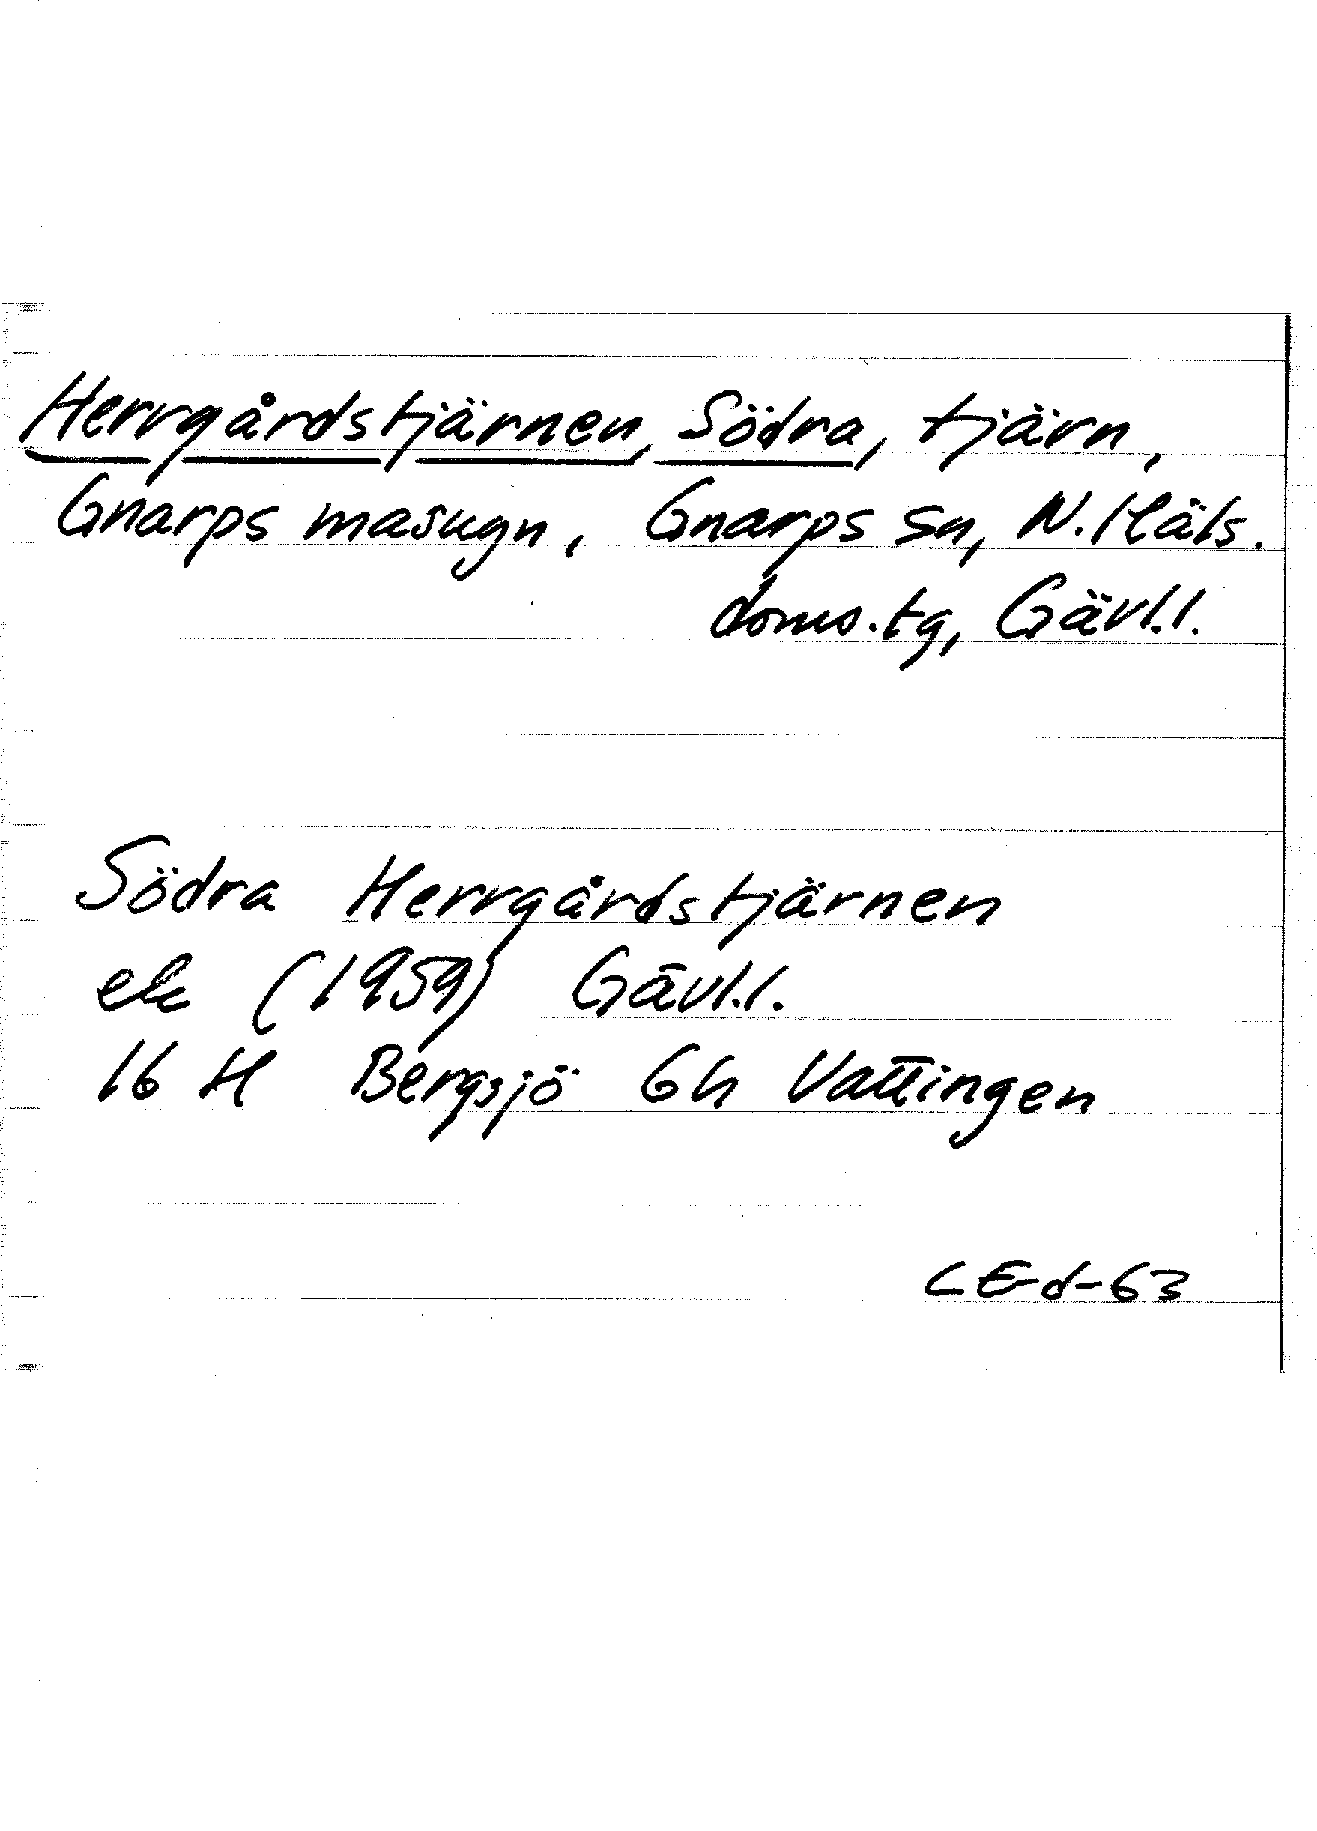 Herrgårdstjärnen, Södra, tjärn,
Gnarps masugn, Gnarps sn, N. Häls.
doms.tg, Gävl.l.
Södra Herrgårdstjärnen
ek (1959) Gävl.l.
16 H Bergsjö 6h Vattingen
LE-d-63